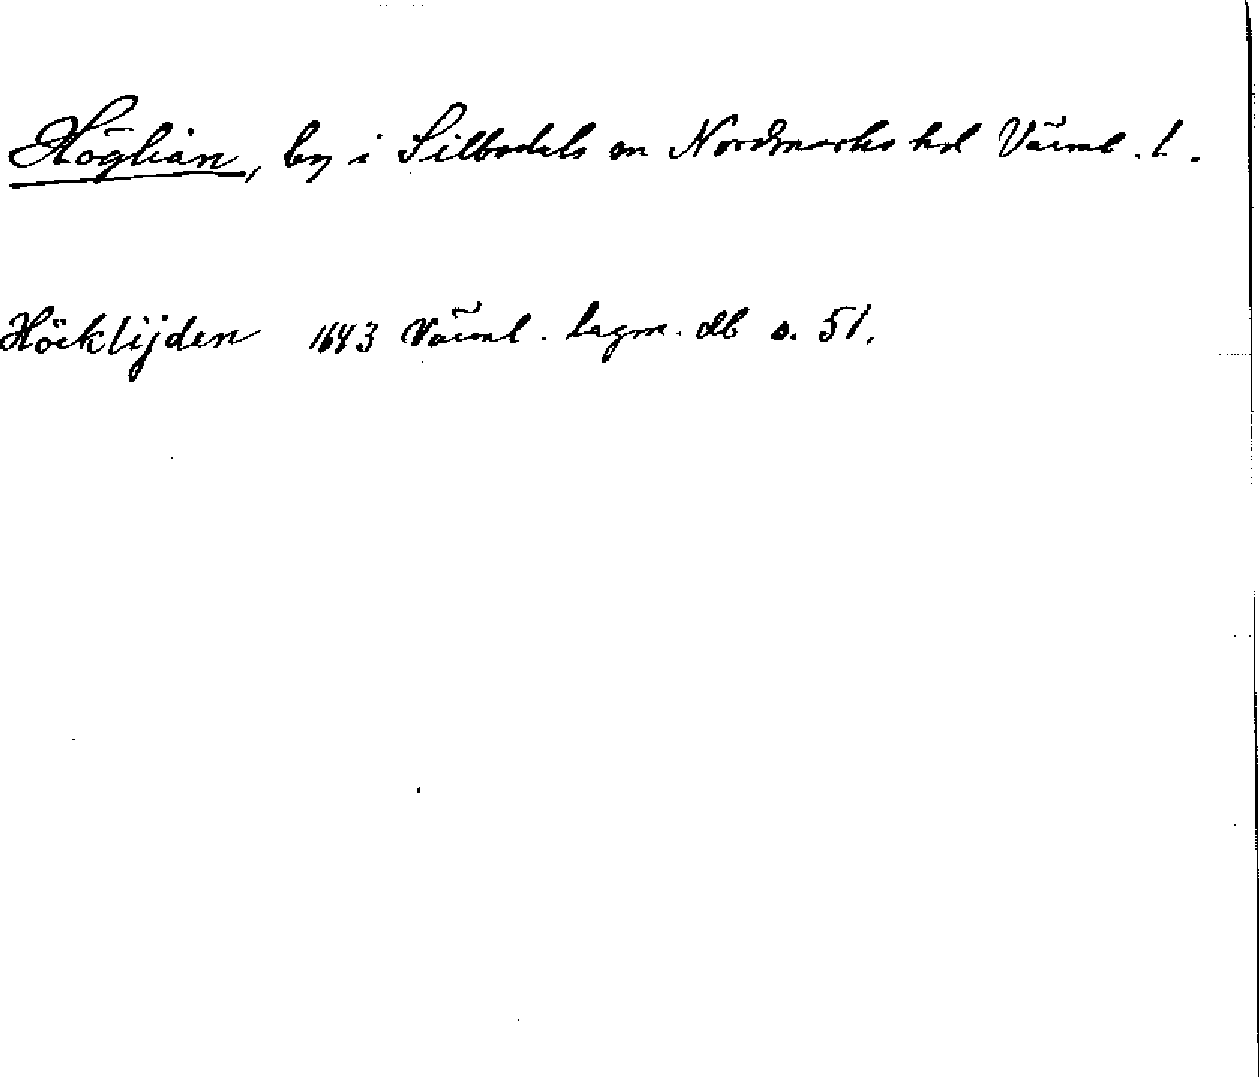 Höglian, by i Silbodals sn Nordmarks hd Värml. l.
Höcklijden 1643 Värml. lagm. db s. 51.